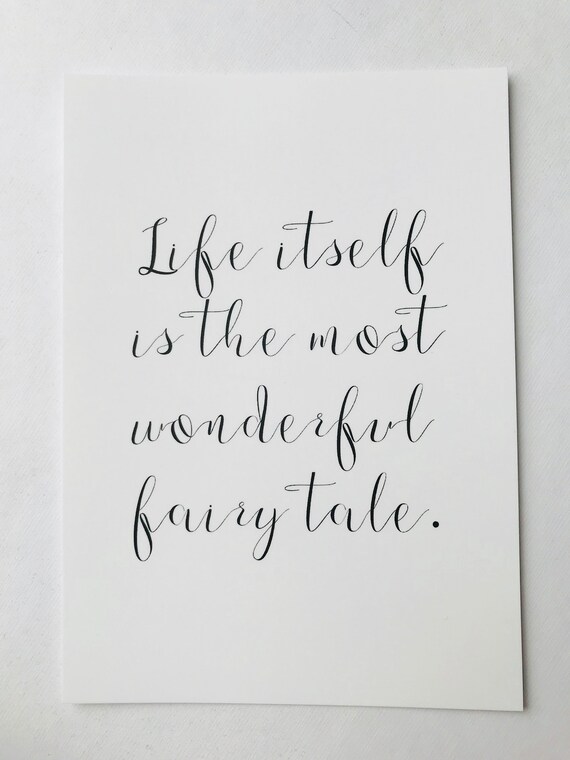 Life itself
is the most
wonderful
fairy tale.